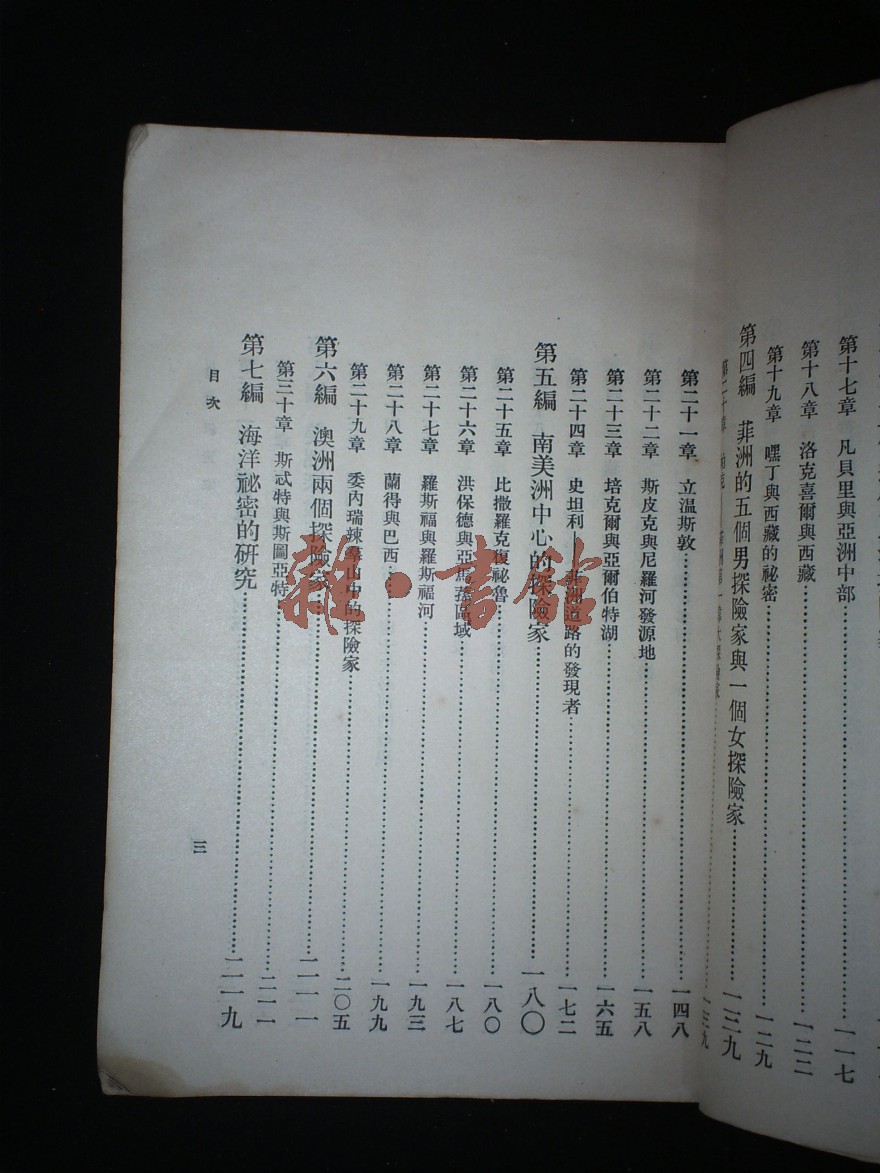 第十七章 凡貝里與亞洲中部 一一七
第十八章 洛克喜爾與西藏 一二二
第十九章 嘿丁與西藏的祕密 一二九
第四編 菲洲的五個男探險家與一個女探險家 一三九
第二十章 一三九
第二十一章 立溫斯敦 一四八
第二十二章 斯皮克與尼羅河發源地 一五八
第二十三章 培克爾與亞爾伯特湖 一六五
第二十四章 史坦利——菲洲道路的發現者 一七二
第五編 南美洲中心的探險家 一八〇
第二十五章 比撒羅克復祕魯 一八〇
第二十六章 洪保德與亞馬孫區域 一八七
第二十七章 羅斯福與羅斯福河 一九三
第二十八章 蘭得與巴西 一九九
第二十九章 委內瑞辣羣山中的探險家 二〇五
第六編 澳洲兩個探險家 二一一
第三十章 斯忒特與斯圖亞特 二一一
第七編 海洋祕密的研究 二一九
目次
三
雜·書館